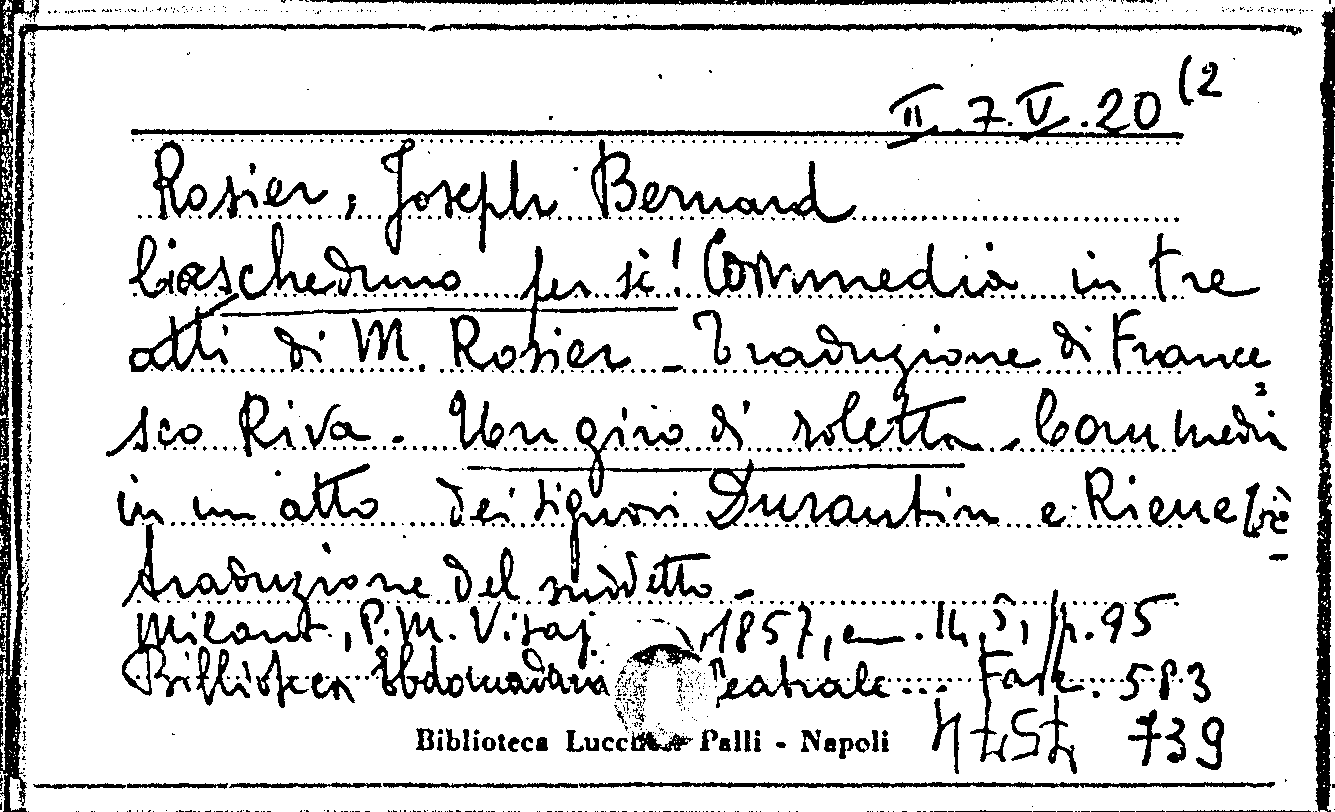 II.7.V.20 (2
Rosier, Joseph Bernard
Ciascheduno per sé! Commedia in tre
atti di M. Rosier - Traduzione di France
sco Riva. Un giro di roletta - Commedia
in un atto dei signori Durantin e
traduzione del suddetto -
Milano, P.M. Visaj 1857, cm. 14,5, p. 95
Biblioteca Ebdomadaria Teatrale... Fasc. 583
739
Biblioteca Lucchesi Palli - Napoli